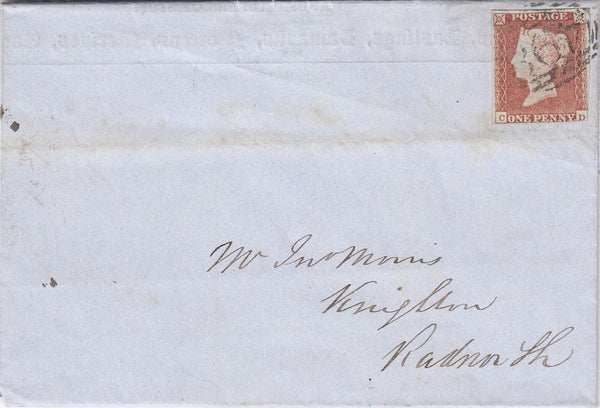 POSTAGE
C ONE PENNY D
Mr Jno Morris
Knighton
Radnor Sh